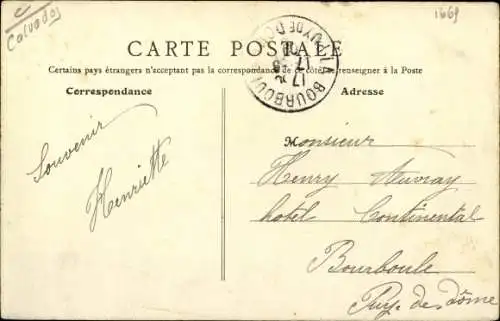 C
Calvados
1669
CARTE POSTALE
Certains pays étrangers n'acceptant pas la correspondance de ce côté, se renseigner à la Poste
LA BOURBOULE
PUY DE DOME
17
Correspondance
Adresse
Souvenir
Henriette
Monsieur
Henry Auvray
hotel Continental
Bourboule
Puy-de-dôme